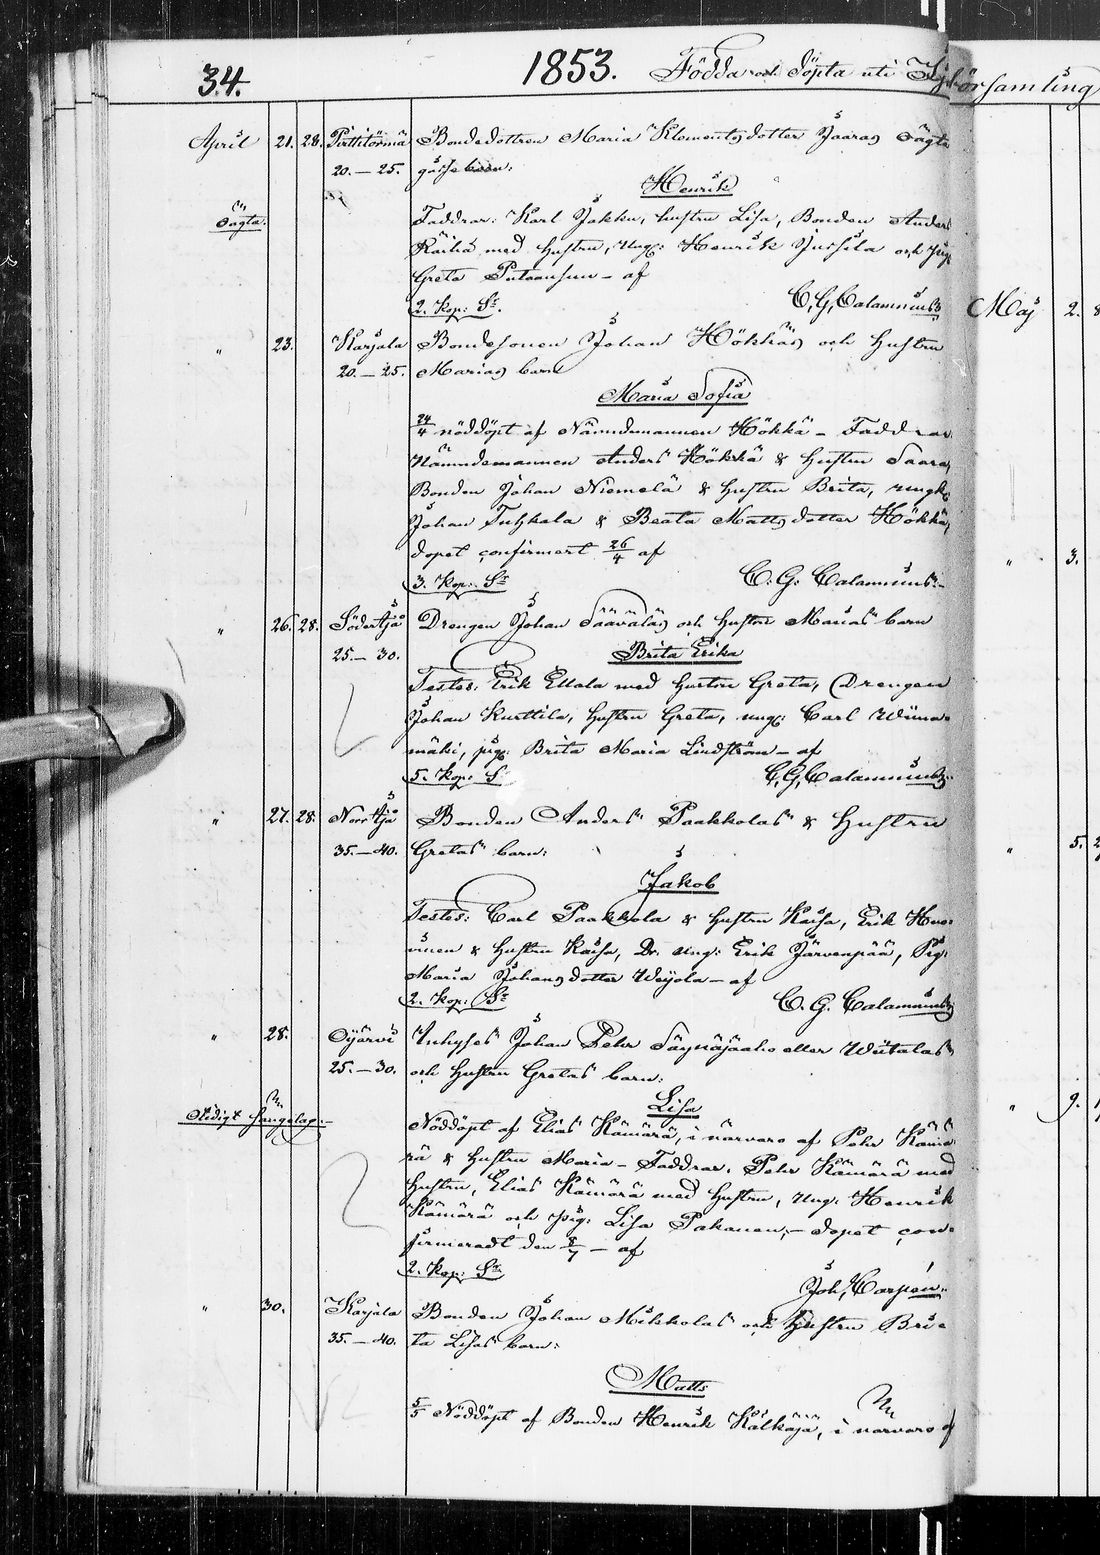 34. 1853. Födda och döpta uti församling
April 21. 28. Pirttitörmä Bondedottren Maria Klementsdotter Jaaras oägta
20.—25. gossebarn:
Henrik
oägta: Faddrar: Karl Jokku, hustru Lisa, Bonden Anders
Raiha med hustru, Ung: Henrik Jussila och pig:
Greta — af
2. Kop: St. C. G. Calamnius
" 23. Karjala Bondesonen Johan Hökkäs och hustru
20.—25. Marias barn
Maria Sofia
24/4 nöddöpt af Nämndemannen Hökkä — Faddrar
Nämndemannen Anders Hökkä & hustru Saara,
Bonden Johan Niemelä & hustru Brita, ungk:
Johan Tuhkala & Beata Mattsdotter Hökkä,
dopet confirmert 26/4 af
3. Kop: St C. G. Calamnius.
" 26. 28. Södertjå Drengen Johan Sääväläs och hustru Marias barn
25.— 30. Brita Erika
Testes: Erik Ellala med hustru Greta, Drengen
Johan Kurttila, hustru Greta, ung: Carl Wiina-
mäki, pig: Brita Maria Lindström — af
5. Kop: S C. G. Calamnius
" 27. 28. Norrtjå Bonden Anders Paakkolas & Hustru
35.—40. Gretas barn:
Jakob
Testes: Carl Paakkola & hustru Kaisa, Erik Huo-
vinen & hustru Kaisa, Dr. ung: Erik Järvenpää, Pig:
Maria Johansdotter Weijola — af
2. Kop: St C. G. Calamnius
" 28. Oijärvi Inhyses Johan Pehr Säynäjäaho eller Wiitalas
25.—30. och hustru Gretas barn:
Lisa
Nöddöpt af Elias Kämärä, i närvaro af Pehr Kämä-
rä & hustru Maria — Faddrar: Pehr Kämärä med
hustru, Elias Kämärä med hustru, Ung: Henrik
Kämärä och pig: Lisa Pakanen; — dopet con-
firmeradt den 8/7 — af
2. Kop: St
Joh. Carpén.
" 30. Karjala Bonden Johan Mikkolas och hustru Bri-
35.—40. ta Lisas barn:
Matts
5/5 Nöddöpt af Bonden Henrik Kälkäjä, i närvaro af
Maj 2. 8
" 3.
" 5. 2
" 9. 1